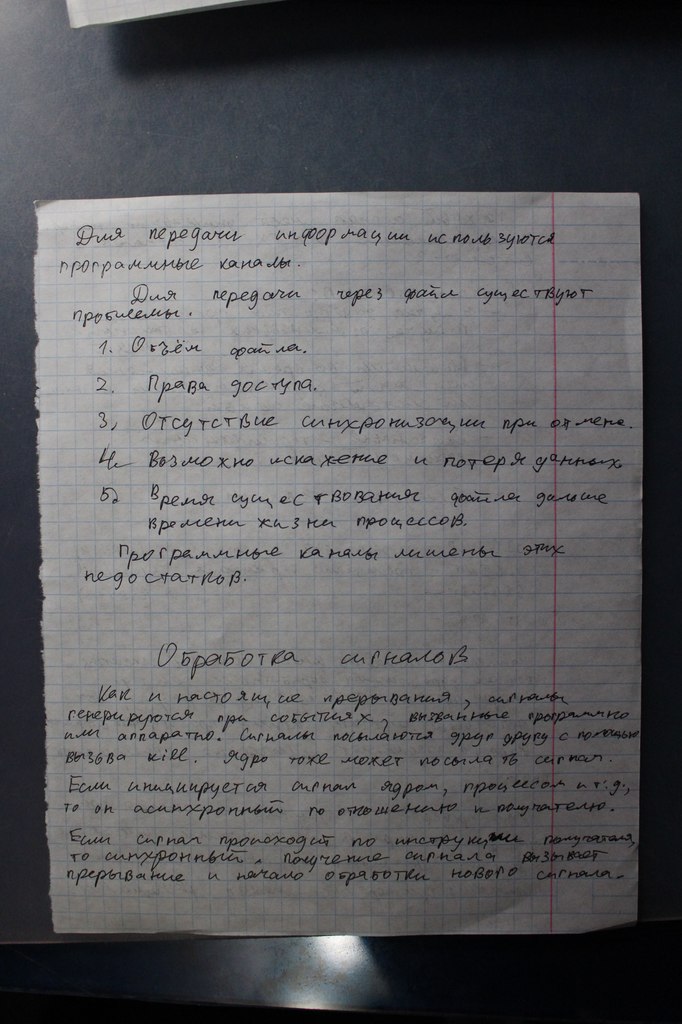 Для передачи информации используются
программные каналы.
Для передачи через файл существуют
проблемы.
1. Объём файла.
2. Права доступа.
3, Отсутствие синхронизации при отмене.
4. Возможно искажение и потеря данных
5. Время существования файла дольше
времени жизни процессов.
Программные каналы лишены этих
недостатков.
Обработка сигналов
Как и настоящие прерывания, сигналы
генерируются при событиях, вызванные программно
или аппаратно. Сигналы посылаются друг другу с помощью
вызова kill. Ядро тоже может посылать сигнал.
Если инициируется сигнал ядром, процессом и т.д.,
то он асинхронный по отношению к получателю.
Если сигнал происходит по инструкции получателя,
то синхронный. Получение сигнала вызывает
прерывание и начало обработки нового сигнала.